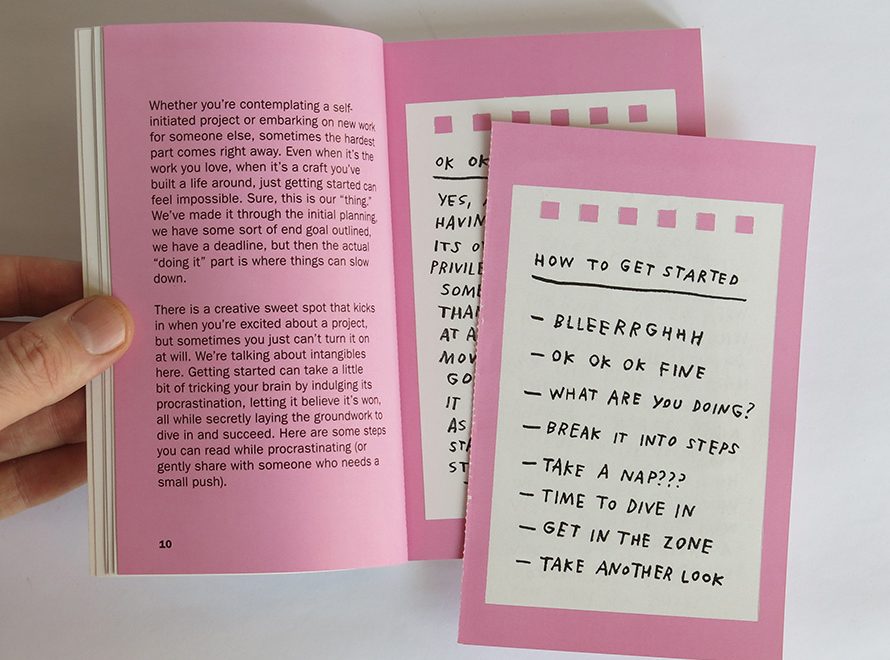 Whether you're contemplating a self-
initiated project or embarking on new work
for someone else, sometimes the hardest
part comes right away. Even when it's the
work you love, when it's a craft you've
built a life around, just getting started can
feel impossible. Sure, this is our "thing."
We've made it through the initial planning,
we have some sort of end goal outlined,
we have a deadline, but then the actual
"doing it" part is where things can slow
down.
There is a creative sweet spot that kicks
in when you're excited about a project,
but sometimes you just can't turn it on
at will. We're talking about intangibles
here. Getting started can take a little
bit of tricking your brain by indulging its
procrastination, letting it believe it's won,
all while secretly laying the groundwork to
dive in and succeed. Here are some steps
you can read while procrastinating (or
gently share with someone who needs a
small push).
10
OK OK
YES,
ITS
AT A
IT
AS
HOW TO GET STARTED
- BLLEERRGHHH
- OK OK OK FINE
- WHAT ARE YOU DOING?
- BREAK IT INTO STEPS
- TAKE A NAP???
- TIME TO DIVE IN
- GET IN THE ZONE
- TAKE ANOTHER LOOK